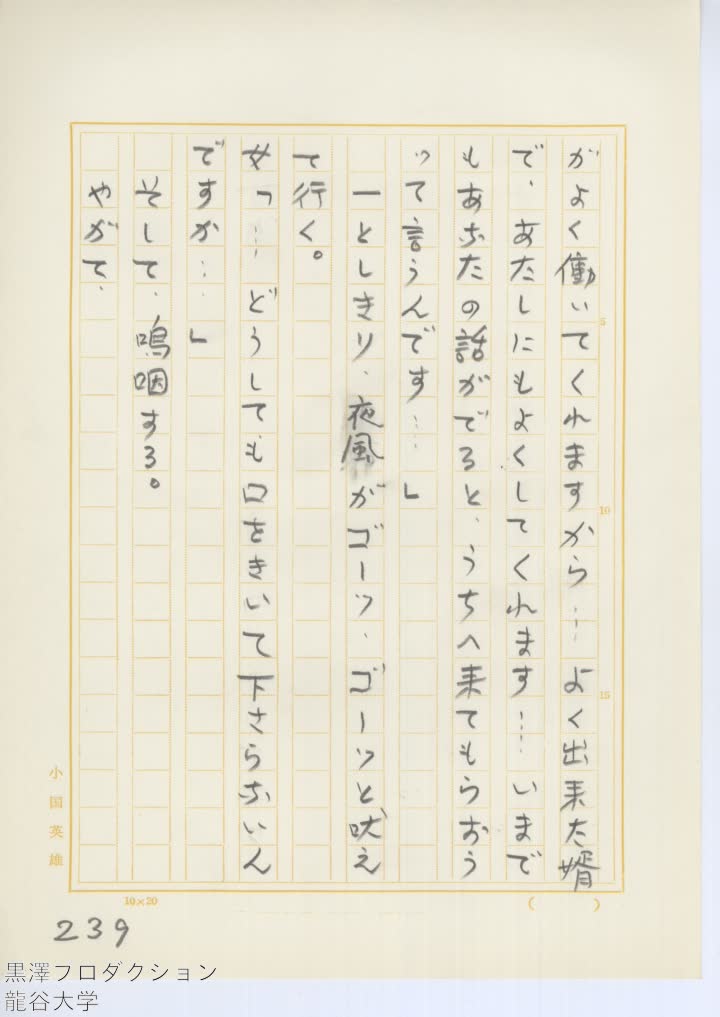 がよく働いてくれますから…よく出来た婿
で、あたしにもよくしてくれます…いまで
もあなたの話がでると、うちへ来てもらおう
って言うんです……」
一としきり、夜風がゴーッ、ゴーッと吠え
て行く。
女「…どうしても口をきいて下さらないん
ですか…」
そして、嗚咽する。
やがて、
5
10
15
小国英雄
10×20
(　)
239
黒澤プロダクション
龍谷大学